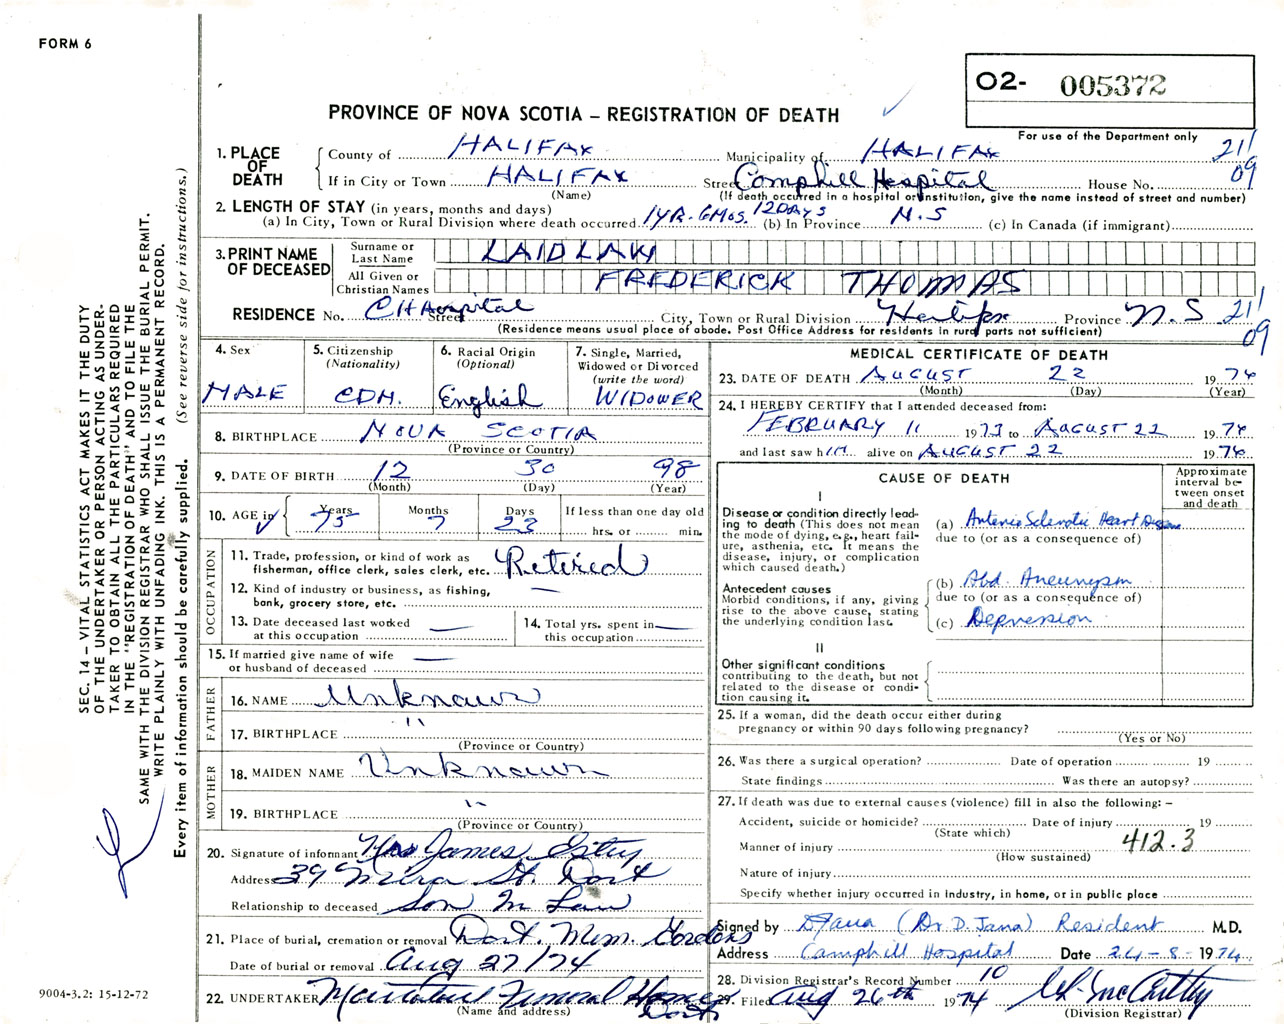 FORM 6
02- 005372
For use of the Department only
PROVINCE OF NOVA SCOTIA – REGISTRATION OF DEATH
1. PLACE OF DEATH
County of HALIFAX Municipality of HALIFAX 21/09
If in City or Town HALIFAX Street Camphill Hospital House No.
(Name) (If death occurred in a hospital or institution, give the name instead of street and number)
2. LENGTH OF STAY (in years, months and days)
(a) In City, Town or Rural Division where death occurred 1 YR. 6 MOS. 12 DAYS (b) In Province N.S (c) In Canada (if immigrant)
3. PRINT NAME OF DECEASED
Surname or Last Name LAIDLAW
All Given or Christian Names FREDERICK THOMAS
RESIDENCE No. C H Hospital Street City, Town or Rural Division Halifax Province N.S 21/09
(Residence means usual place of abode. Post Office Address for residents in rural parts not sufficient)
4. Sex
MALE
5. Citizenship
(Nationality)
CDN.
6. Racial Origin
(Optional)
English
7. Single, Married,
Widowed or Divorced
(write the word)
WIDOWER
8. BIRTHPLACE NOVA SCOTIA
(Province or Country)
9. DATE OF BIRTH 12 30 98
(Month) (Day) (Year)
10. AGE in Years 75 Months 7 Days 23
If less than one day old
hrs. or min.
OCCUPATION
11. Trade, profession, or kind of work as
fisherman, office clerk, sales clerk, etc. Retired
12. Kind of industry or business, as fishing,
bank, grocery store, etc. —
13. Date deceased last worked
at this occupation —
14. Total yrs. spent in
this occupation —
15. If married give name of wife
or husband of deceased —
FATHER
16. NAME Unknown
17. BIRTHPLACE "
(Province or Country)
MOTHER
18. MAIDEN NAME Unknown
19. BIRTHPLACE "
(Province or Country)
20. Signature of informant James
Address 39 St. Dart
Relationship to deceased Son In Law
21. Place of burial, cremation or removal Dart. Mem. Gardens
Date of burial or removal Aug 27/74
22. UNDERTAKER Funeral Home Dart
(Name and address)
MEDICAL CERTIFICATE OF DEATH
23. DATE OF DEATH AUGUST 22 1974
(Month) (Day) (Year)
24. I HEREBY CERTIFY that I attended deceased from:
FEBRUARY 11 1973 to AUGUST 22 1974
and last saw him alive on AUGUST 22 1974
CAUSE OF DEATH
Approximate interval between onset and death
I
Disease or condition directly leading to death (This does not mean
the mode of dying, e.g., heart failure, asthenia, etc. It means the
disease, injury, or complication
which caused death.)
(a) Arterio Sclerotic Heart Disease
due to (or as a consequence of)
Antecedent causes
Morbid conditions, if any, giving
rise to the above cause, stating
the underlying condition last.
(b) Abd. Aneurysm
due to (or as a consequence of)
(c) Depression
II
Other significant conditions
contributing to the death, but not
related to the disease or condition causing it.
25. If a woman, did the death occur either during
pregnancy or within 90 days following pregnancy?
(Yes or No)
26. Was there a surgical operation? Date of operation 19
State findings Was there an autopsy?
27. If death was due to external causes (violence) fill in also the following: –
Accident, suicide or homicide? Date of injury 19
(State which)
Manner of injury 412.3
(How sustained)
Nature of injury
Specify whether injury occurred in industry, in home, or in public place
Signed by DJana (Dr. D. Jana) Resident M.D.
Address Camphill Hospital Date 24-8-1974
28. Division Registrar's Record Number 10
29. Filed Aug 26th 1974 McCarthy
(Division Registrar)
SEC. 14 – VITAL STATISTICS ACT MAKES IT THE DUTY
OF THE UNDERTAKER OR PERSON ACTING AS UNDER-
TAKER TO OBTAIN ALL THE PARTICULARS REQUIRED
IN THE "REGISTRATION OF DEATH" AND TO FILE THE
SAME WITH THE DIVISION REGISTRAR WHO SHALL ISSUE THE BURIAL PERMIT.
WRITE PLAINLY WITH UNFADING INK. THIS IS A PERMANENT RECORD.
Every item of information should be carefully supplied. (See reverse side for instructions.)
9004-3.2: 15-12-72